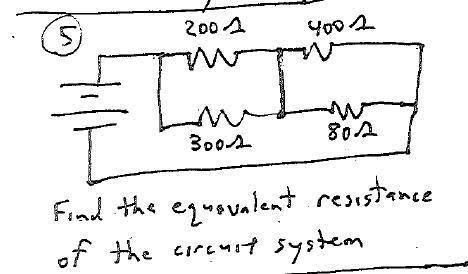 5
200Ω 400Ω
300Ω 80Ω
Find the equovalent resistance
of the circuit system